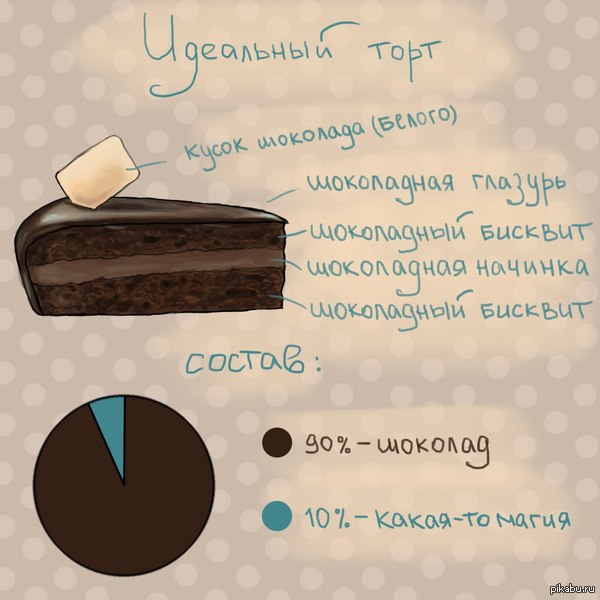 Идеальный торт
кусок шоколада (белого)
шоколадная глазурь
шоколадный бисквит
шоколадная начинка
шоколадный бисквит
состав:
90% - шоколад
10% - какая-то магия
pikabu.ru